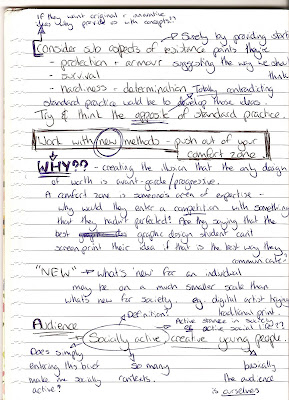 If they want original + innovative
ideas why provide us with concepts??
Surely by providing start
Consider sub aspects of resistance points they're
- protection - armour suggesting the way we should
- survival think
- hardness - determination Totally contradicting
standard practice would be to develop those ideas.
Try & think the opposite of standard practice
Work with new methods - push out of your
comfort zone
WHY?? - creating the illusion that the only design
of worth is avant-garde/progressive.
A comfort zone is someone's area of expertise -
why would they enter a competition with something
that they hadn't perfected? Are they saying that the
best graphic design student can't
screenprint their idea if that is the best way they
communicate?
"NEW" → what's 'new' for an individual
may be on a much smaller scale than
what's new for society. eg. digital artist trying
traditional print.
Audience
Definition?
Active stance in society
or active social life??
Socially active/creative young people.
Does simply
entering this brief
make me socially
active?
So many
contexts.
basically
the audience
is ourselves